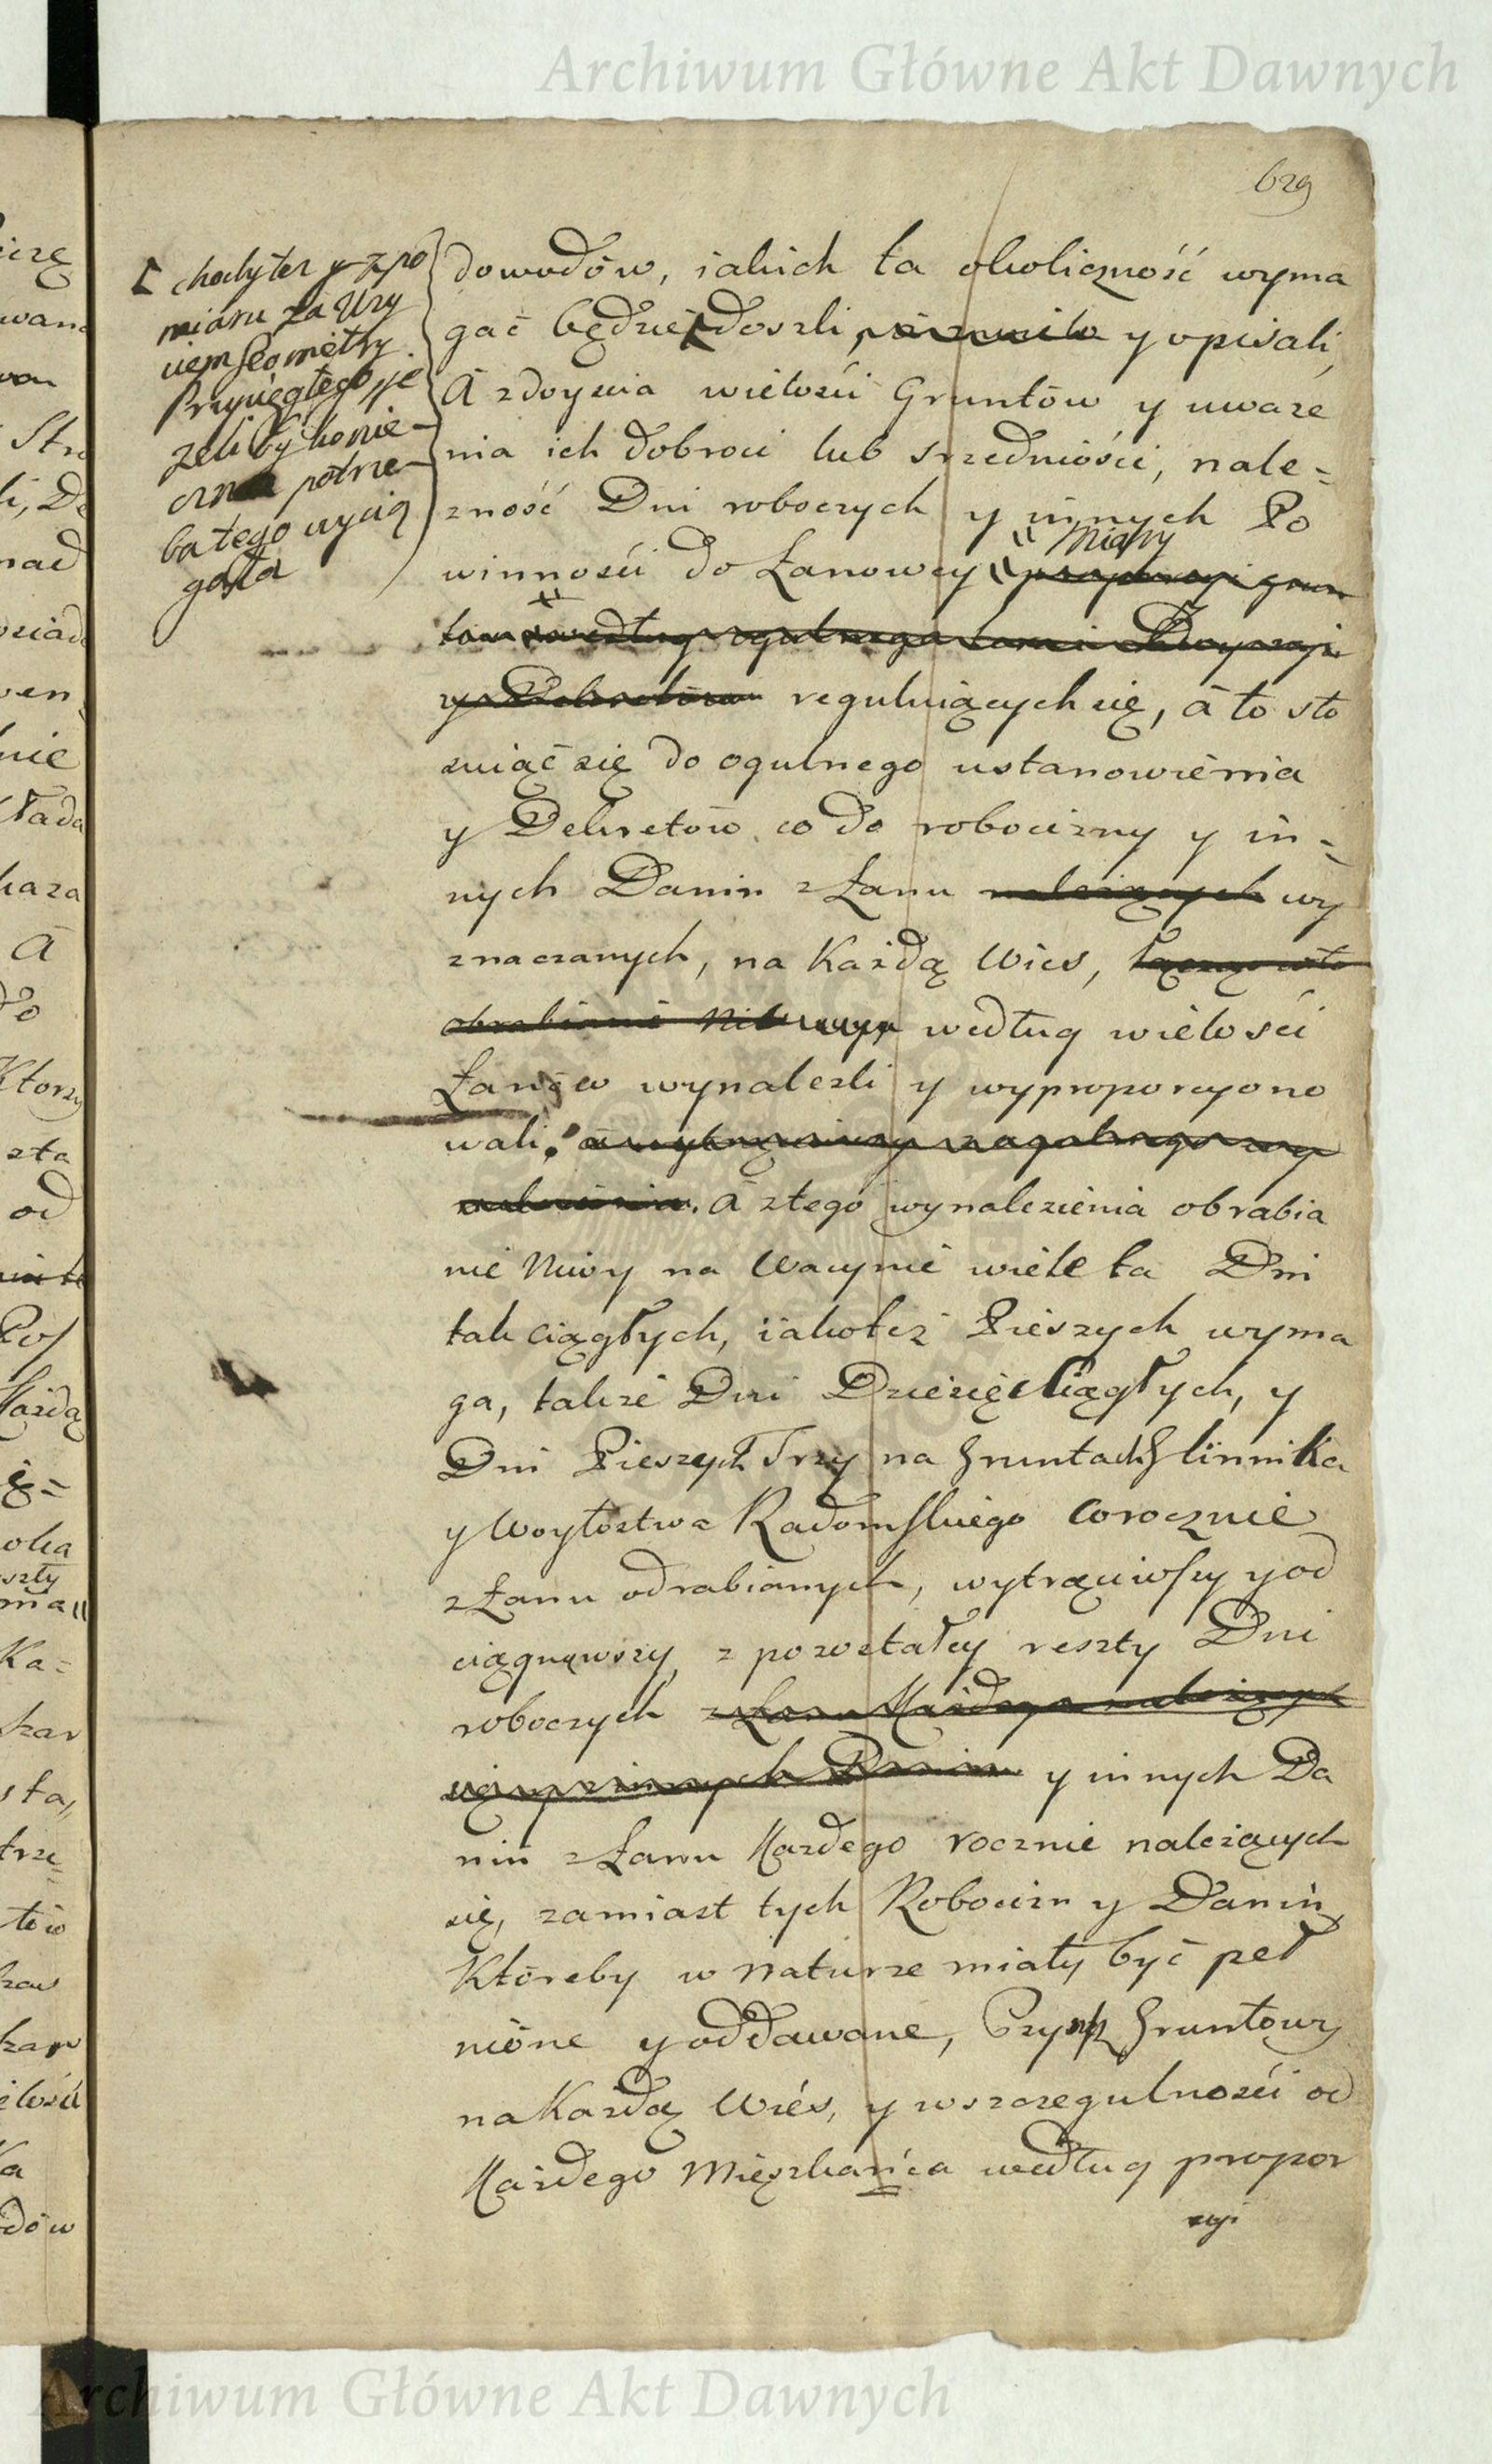 Archiwum Główne Akt Dawnych
629
chodyter y z po
miaru za Uzy
ciem Geometry
Przysięgłego, je
żeli by konie-
czna potrze-
ba tego wycią
gała
dowodów, iakich ta okoliczność wyma
gać będzie doszli, y opisali,
A zdoyscia wielosci Gruntów y uwaze
nia ich dobroci lub srzedniości, nale=
zność Dni roboczych y innych Po
Miary
winnosci do Łanowey
regulujących się, à to sto
suiąć się do ogulnego ustanowienia
y Dekretow co do robocizny y in=
nych Danin z Łanu należących wy
znaczanych, na Każdą Wies, Łącząc w to
obrabianie Niwy według wielosći
Łanów wynalezli y wyproporcyono
wali.
à z tego wynalezienia obrabia
nie Niwy na Wacynie wiele ta Dni
tak ciągłych, iakoteż Pieszych wyma
ga, takze Dni Dziesięć Ciągłych, y
Dni Pieszych Trzy na Gruntach Glinnika
y Woytostwa Radomskiego Corocznie
z Łanu odrabianych, wytrąciwszy y od
ciągnąwszy z pozostałey reszty Dni
roboczych z Łanu Każdego należących
się y z innych Danin y innych Da
nin z Łanu Każdego rocznie należących
się, zamiast tych Robocizn y Danin,
Któreby w naturze miały być peł
nióne y oddawane, Czynsz Gruntowy
na Każdą Wiés, y wszczegulnosći od
Każdego Mięszkańca według propor
cyi
Archiwum Główne Akt Dawnych